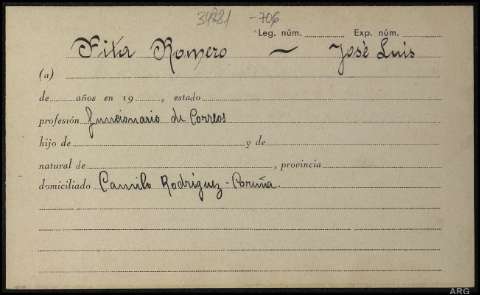 -706
Leg. núm. Exp. núm.
Fita Romero — José Luis
(a)
de años en 19 , estado
profesión funcionario de Correos
hijo de y de
natural de , provincia
domiciliado Camilo Rodríguez - Coruña.
ARG